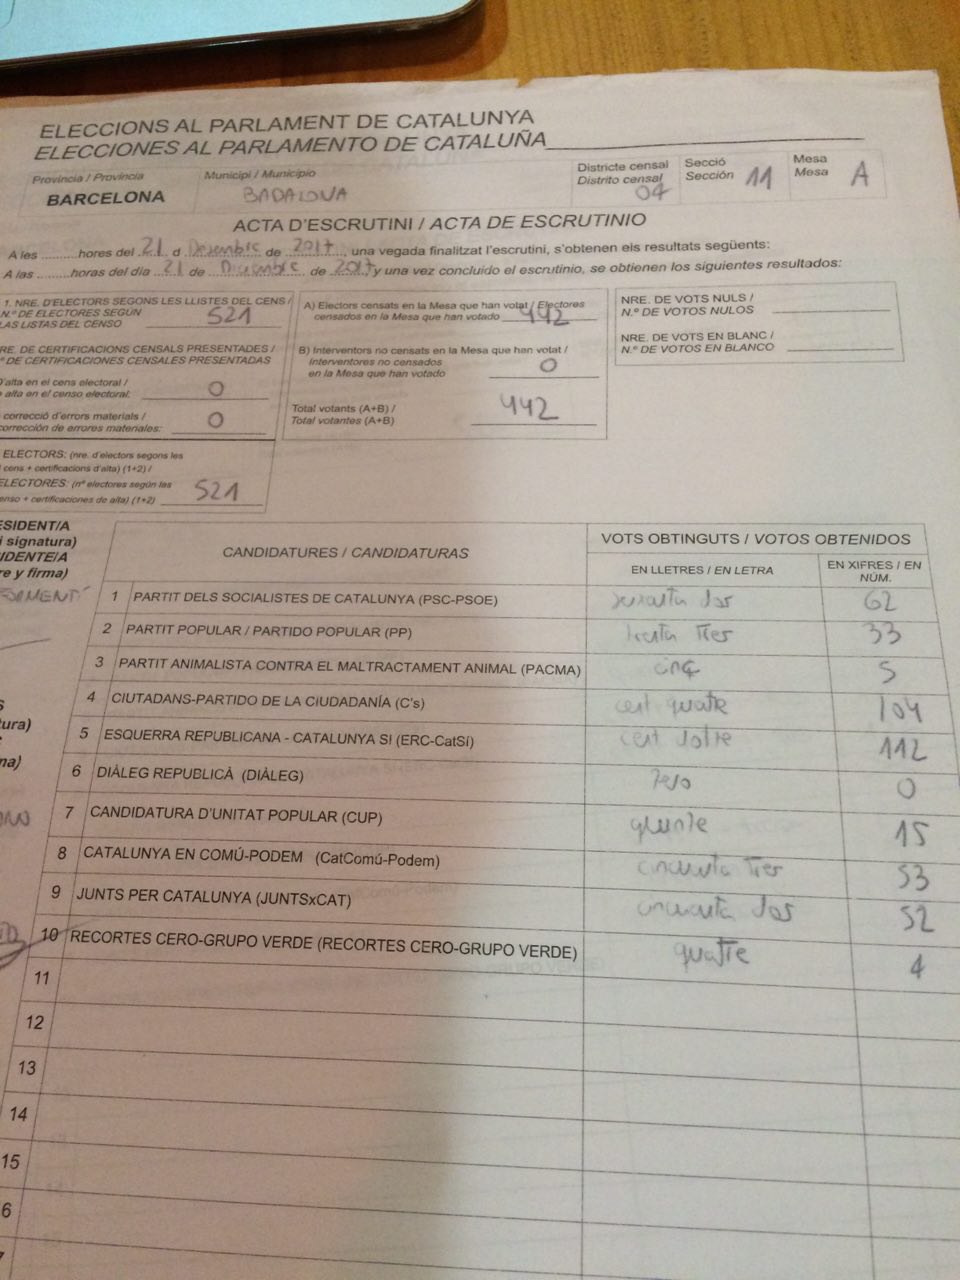 ELECCIONS AL PARLAMENT DE CATALUNYA
ELECCIONES AL PARLAMENTO DE CATALUÑA
Provincia / Provincia
BARCELONA
Municipi / Municipio
BADALONA
Districte censal
Distrito censal
04
Secció
Sección
11
Mesa
Mesa
A
ACTA D'ESCRUTINI / ACTA DE ESCRUTINIO
A les ........hores del 21 d Desembre de 2017, una vegada finalitzat l'escrutini, s'obtenen els resultats següents:
A las ........horas del día 21 de Diciembre de 2017 y una vez concluido el escrutinio, se obtienen los siguientes resultados:
1. NRE. D'ELECTORS SEGONS LES LLISTES DEL CENS /
N.º DE ELECTORES SEGÚN
LAS LISTAS DEL CENSO
521
RE. DE CERTIFICACIONS CENSALS PRESENTADES /
º DE CERTIFICACIONES CENSALES PRESENTADAS
'alta en el cens electoral /
alta en el censo electoral:
0
correcció d'errors materials /
corrección de errores materiales:
0
ELECTORS: (nre. d'electors segons les
cens + certificacions d'alta) (1+2) /
ELECTORES: (nº electores según las
enso + certificaciones de alta) (1+2)
521
A) Electors censats en la Mesa que han votat / Electores
censados en la Mesa que han votado
442
B) Interventors no censats en la Mesa que han votat /
Interventores no censados
en la Mesa que han votado
0
Total votants (A+B) /
Total votantes (A+B)
442
NRE. DE VOTS NULS /
N.º DE VOTOS NULOS
NRE. DE VOTS EN BLANC /
N.º DE VOTOS EN BLANCO
ESIDENT/A
i signatura)
IDENTE/A
re y firma)
CANDIDATURES / CANDIDATURAS
VOTS OBTINGUTS / VOTOS OBTENIDOS
EN LLETRES / EN LETRA
EN XIFRES / EN NÚM.
1 PARTIT DELS SOCIALISTES DE CATALUNYA (PSC-PSOE) seixanta dos 62
2 PARTIT POPULAR / PARTIDO POPULAR (PP) trenta tres 33
3 PARTIT ANIMALISTA CONTRA EL MALTRACTAMENT ANIMAL (PACMA) cinq 5
4 CIUTADANS-PARTIDO DE LA CIUDADANÍA (C's) cent quatre 104
5 ESQUERRA REPUBLICANA - CATALUNYA SI (ERC-CatSí) cent dotze 112
6 DIÀLEG REPUBLICÀ (DIÀLEG) zero 0
7 CANDIDATURA D'UNITAT POPULAR (CUP) quinze 15
8 CATALUNYA EN COMÚ-PODEM (CatComú-Podem) cincuanta tres 53
9 JUNTS PER CATALUNYA (JUNTSxCAT) cincuanta dos 52
10 RECORTES CERO-GRUPO VERDE (RECORTES CERO-GRUPO VERDE) quatre 4
11
12
13
14
15
6